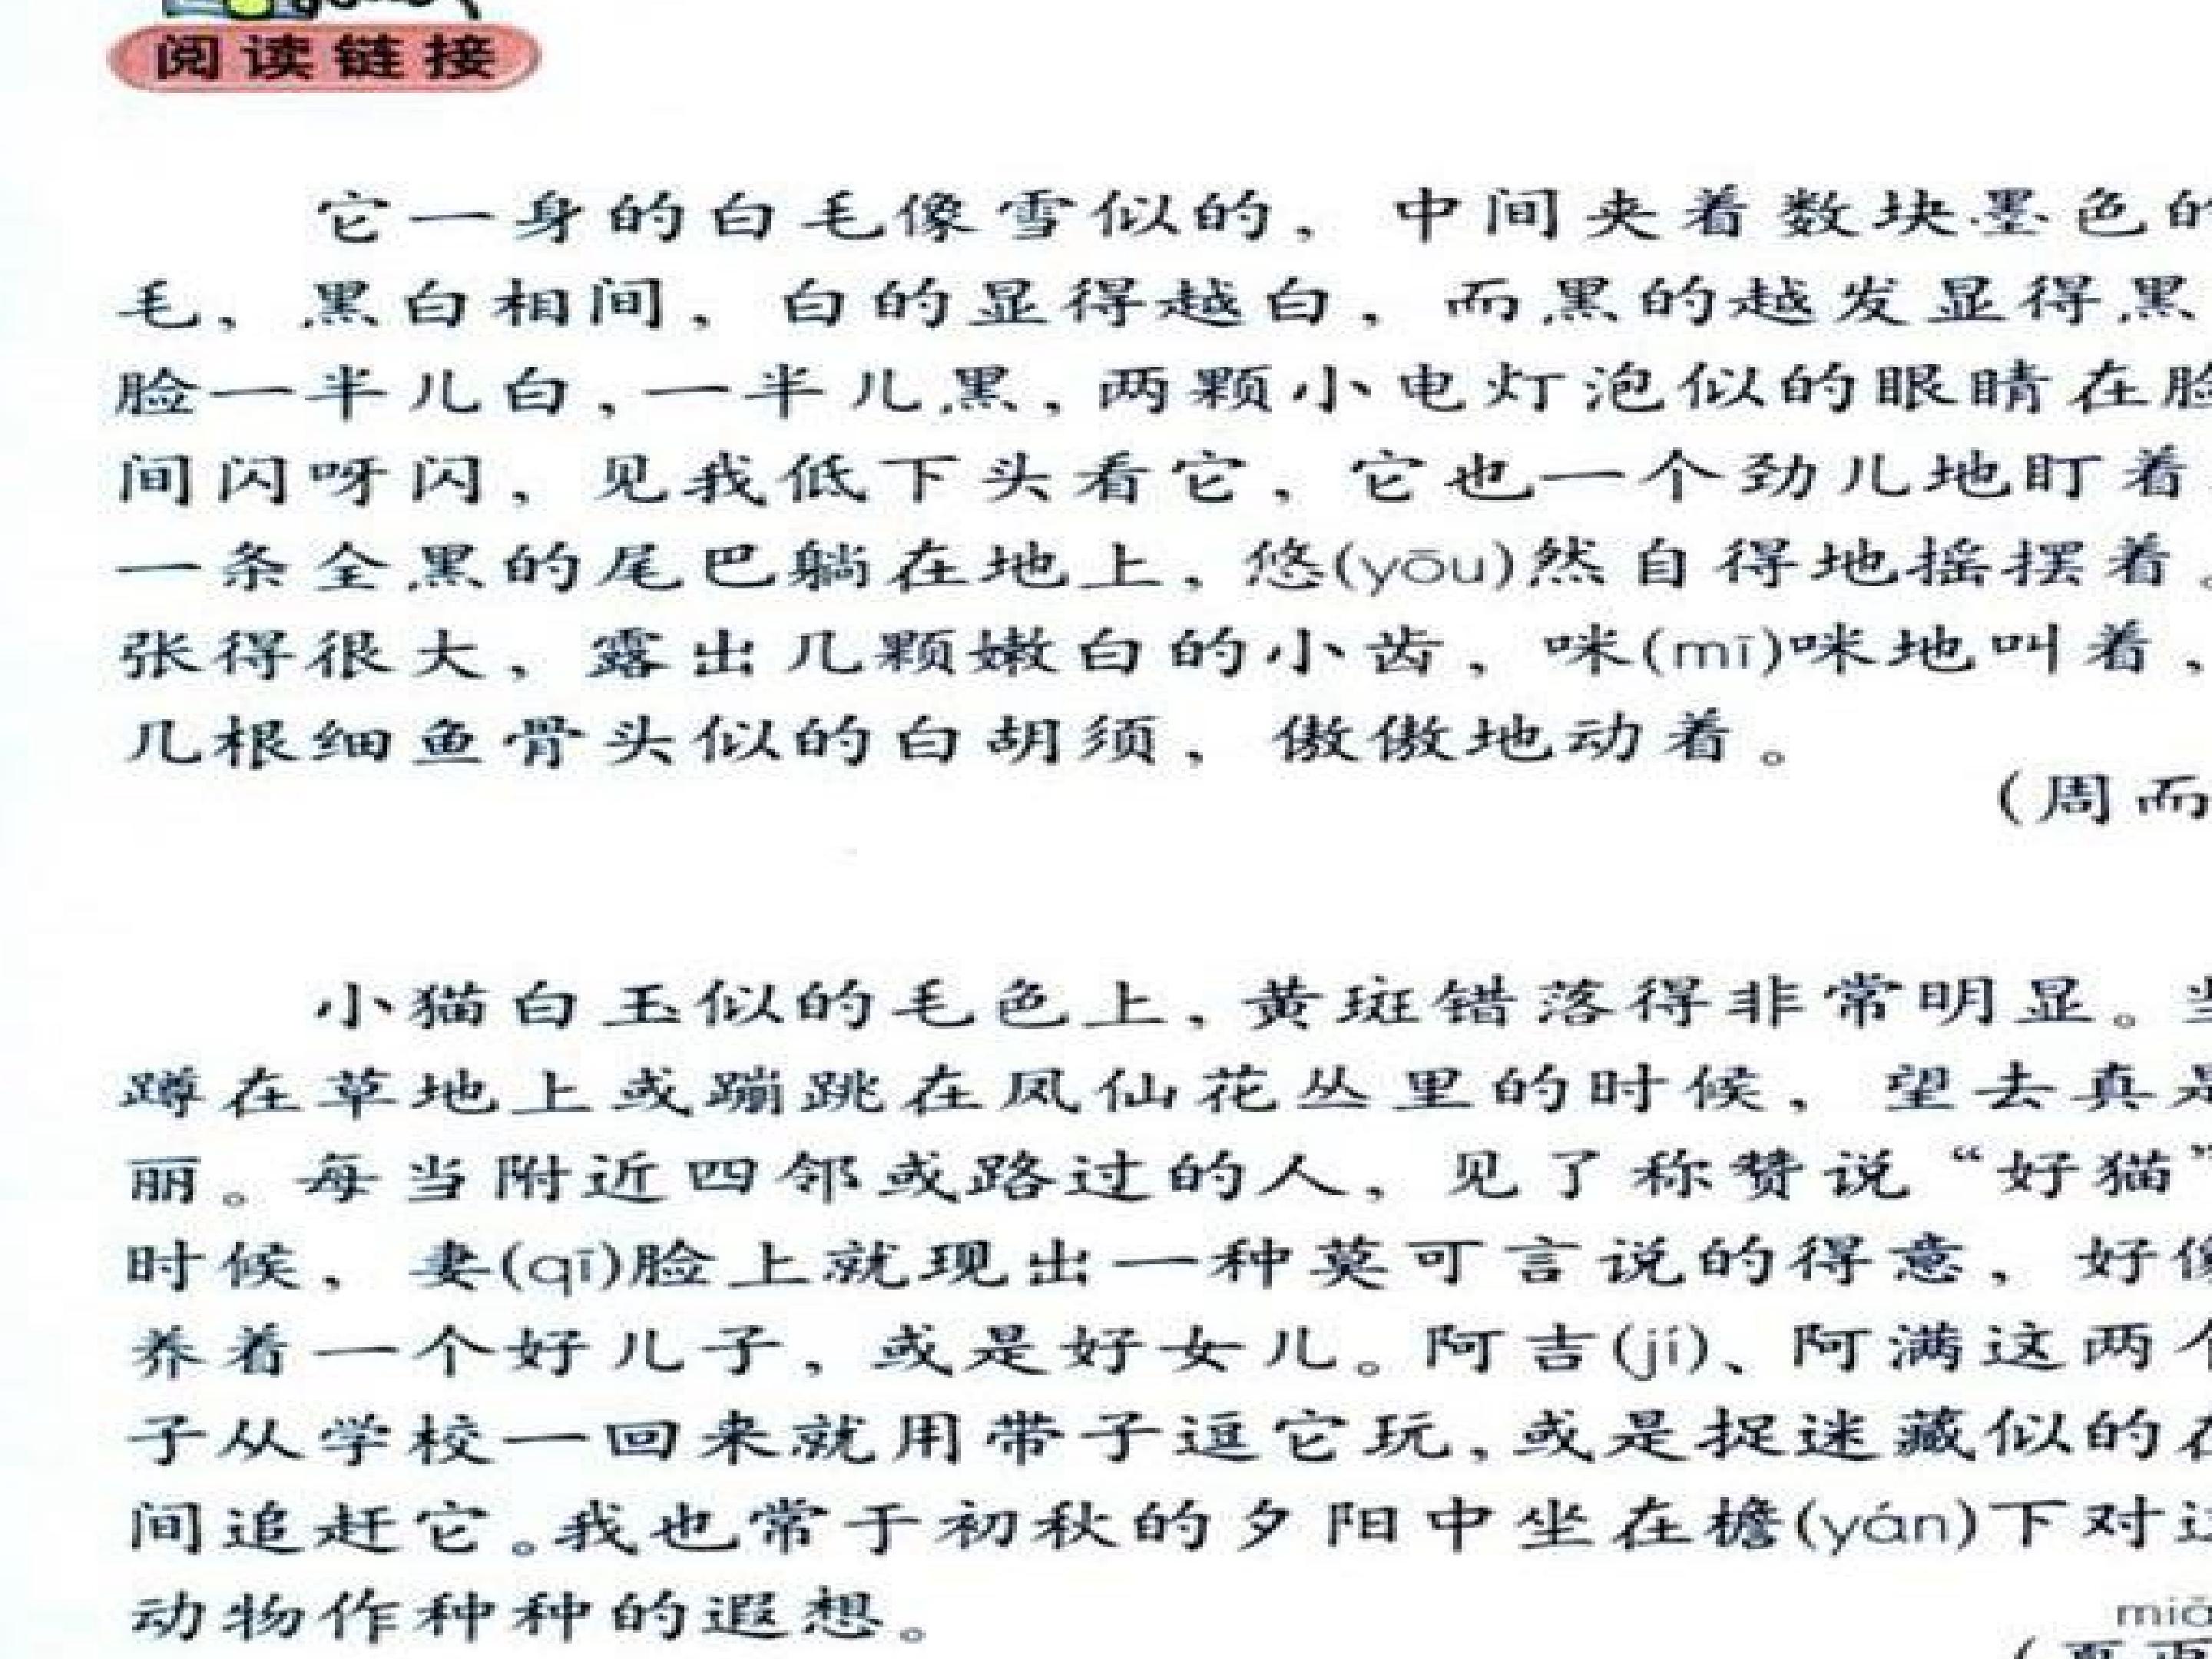 阅读链接
它一身的白毛像雪似的，中间夹着数块墨色的
毛，黑白相间，白的显得越白，而黑的越发显得黑
脸一半儿白，一半儿黑，两颗小电灯泡似的眼睛在脸
间闪呀闪，见我低下头看它，它也一个劲儿地盯着
一条全黑的尾巴躺在地上，悠(yōu)然自得地摇摆着。
张得很大，露出几颗嫩白的小齿，咪(mī)咪地叫着，
几根细鱼骨头似的白胡须，傲傲地动着。
（周而
小猫白玉似的毛色上，黄斑错落得非常明显。当
蹲在草地上或蹦跳在凤仙花丛里的时候，望去真是
丽。每当附近四邻或路过的人，见了称赞说“好猫”
时候，妻(qī)脸上就现出一种莫可言说的得意，好像
养着一个好儿子，或是好女儿。阿吉(jí)、阿满这两个
子从学校一回来就用带子逗它玩，或是捉迷藏似的在
间追赶它。我也常于初秋的夕阳中坐在檐(yán)下对这
动物作种种的遐想。